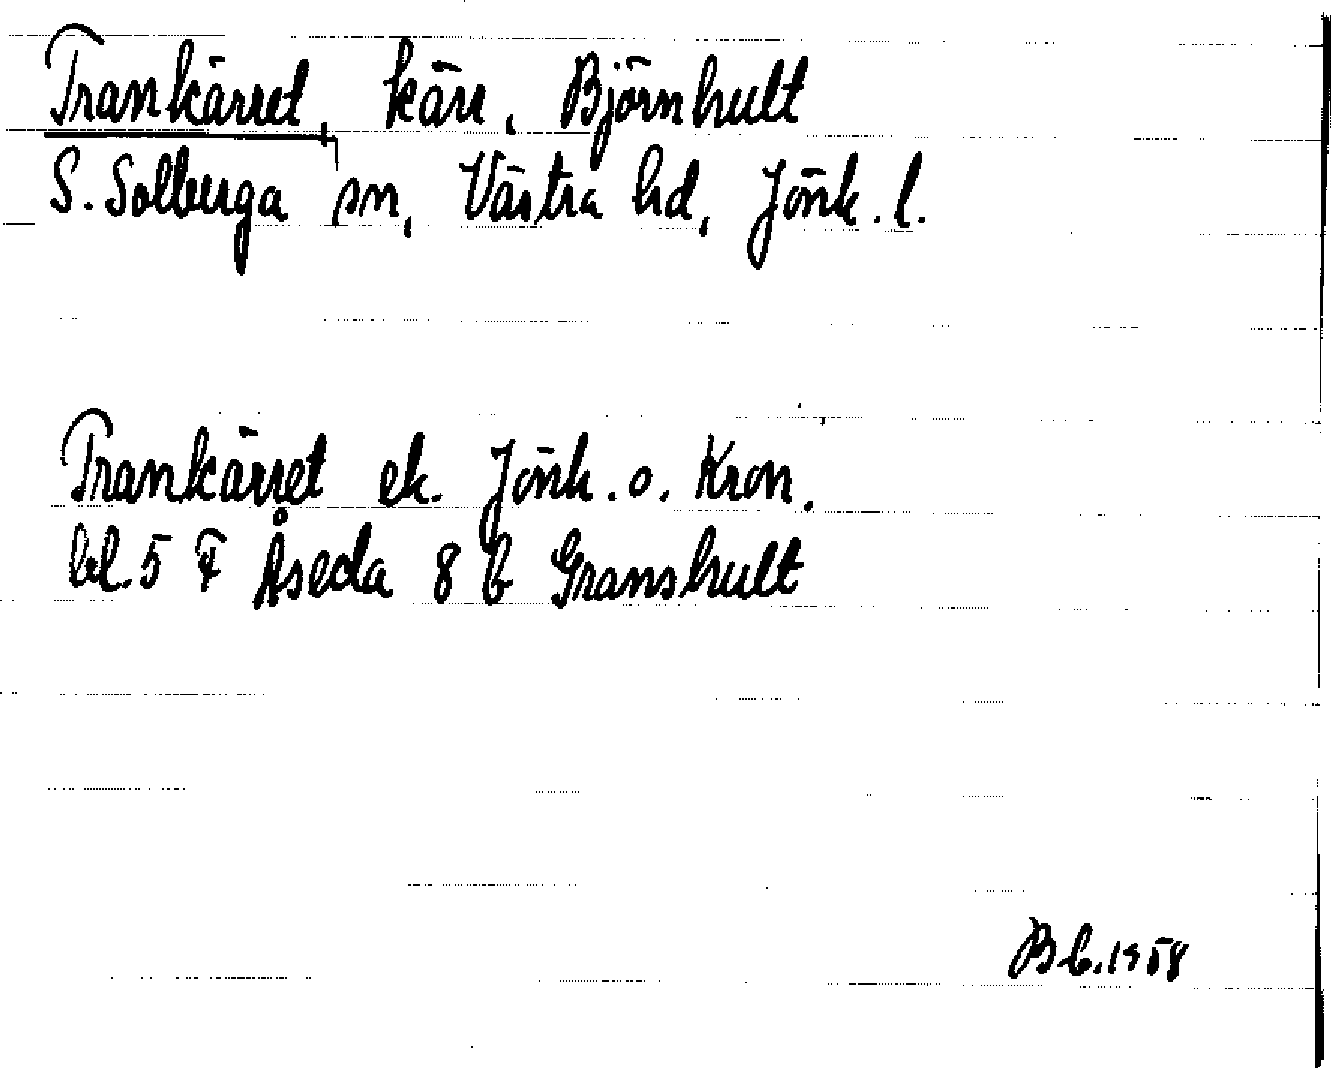 Trankärret, kärr, Björnhult
S. Solberga sn, Västra hd, Jönk. l.
Trankärret ek. Jönk. o. Kron.
bl. 5 F Åseda 8 b Granshult
BL. 1958